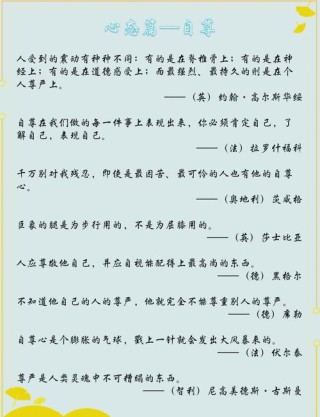 心态篇—自尊
人受到的震动有种种不同：有的是在脊椎骨上；有的是在神
经上；有的是在道德感受上；而最强烈、最持久的则是在个
人尊严上。
——（英）约翰·高尔斯华绥
自尊在我们做的每一件事上表现出来，你必须肯定自己，了
解自己，表现自己。
——（法）拉罗什福科
千万别对我残忍，即使是最困苦、最可怜的人也有他的自尊
心。
——（奥地利）茨威格
巨象的腿是为步行用的，不是为屈膝用的。
——（英）莎士比亚
人应尊敬他自己，并应自视能配得上最高尚的东西。
——（德）黑格尔
不知道他自己的人的尊严，他就完全不能尊重别人的尊严。
——（德）席勒
自尊心是个膨胀的气球，戳上一针就会发出大风暴来的。
——（法）伏尔泰
尊严是人类灵魂中不可糟蹋的东西。
——（智利）尼高美德斯·古斯曼